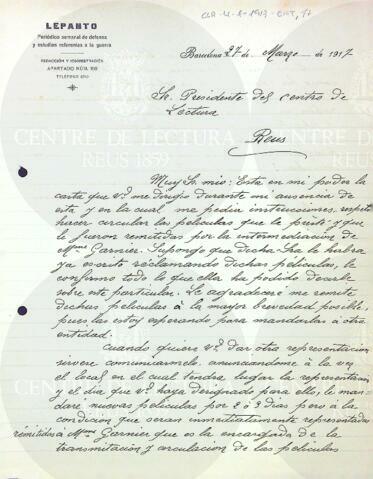 CLR-4.1-1917-ENT, 17
LEPANTO
Periódico semanal de defensa
y estudios referentes á la guerra
REDACCIÓN Y ADMINISTRACIÓN
APARTADO NÚM.
TELÉFONO
Barcelona 27 de Marzo de 1917
Sr. Presidente del Centro de
Lectura
Reus
CENTRE DE LECTURA
REUS 1859
Muy Sr. mio: Esta en mi poder la
carta que Vd. me dirigió durante mi ausencia de
esta y en la cual me pedia instrucciones respeto
hacer circular las peliculas que le presté y que
le fueron remitidas por la intermediación de
Mme Garnier. Supongo que dicha Sra le habra
ya escrito reclamando dichas peliculas, le
confirmo todo lo que ella ha podido decirle
sobre este particular. Le agradeceré me remita
dichas peliculas á la mayor brevedad posible,
pues las estoy esperando para mandarlas á otra
entidad.
Cuando quiera Vd. dar otra representacion
sirvase comunicarmelo, anunciandome á la vez
el local en el cual tendra lugar la representacion
y el dia que Vd. haya designado para ello, le man-
daré nuevas peliculas por 2 ó 3 dias pero á la
condición que seran inmediatamente representadas
remitidas á Mme Garnier que es la encargada de la
transmitación y circulacion de las peliculas